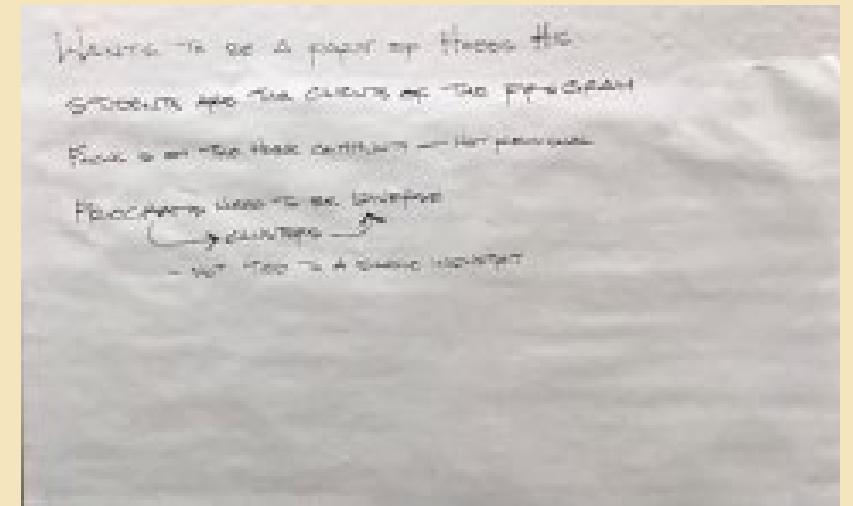 WANTS TO BE A PART OF HIS
STUDENTS ARE THE CLIENTS OF THE PROGRAM
FOCUS IS ON THE COMMUNITY — NOT
PROGRAMS NEED TO BE DIVERSE
CLUSTERS
- NOT TIED TO A SINGLE INDUSTRY